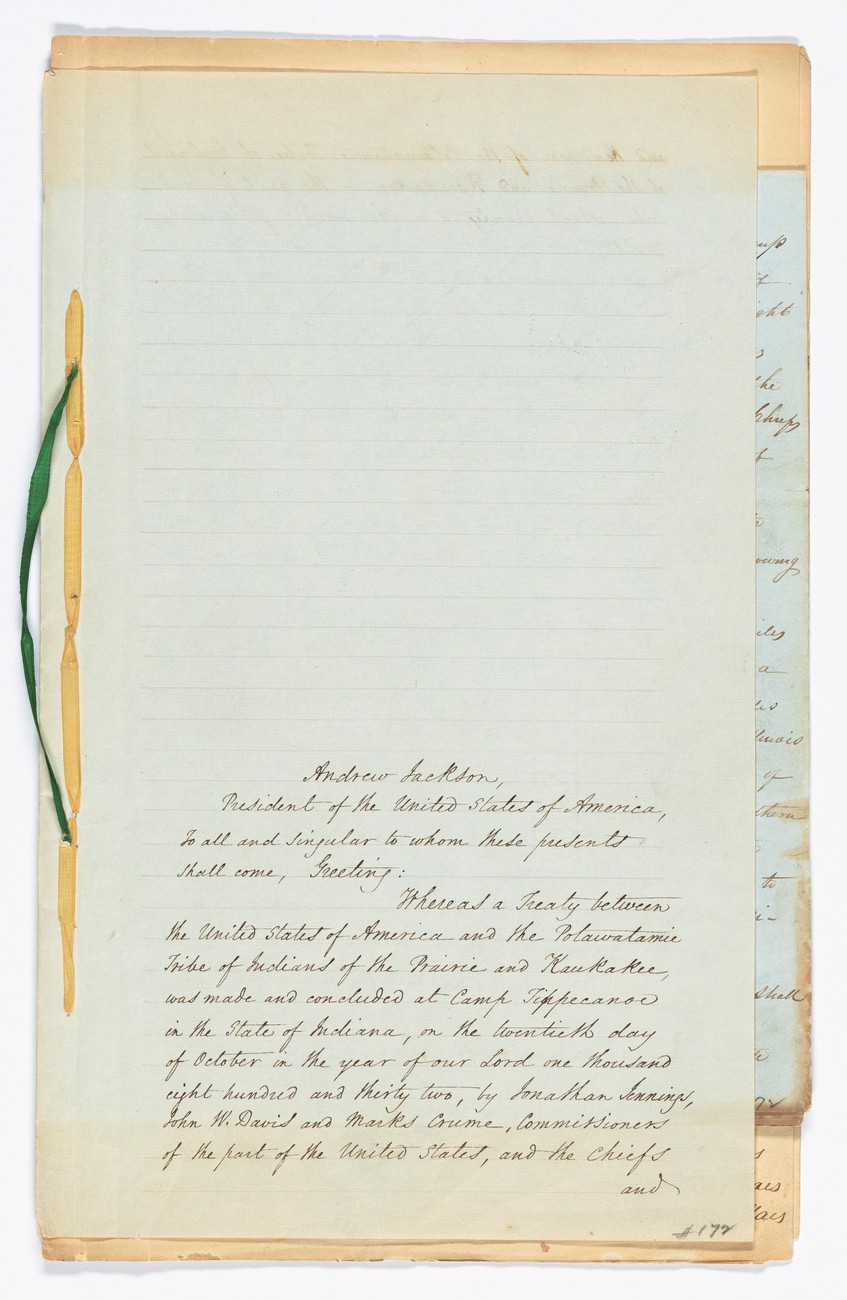 Andrew Jackson,
President of the United States of America,
To all and Singular to whom these presents
shall come, Greeting:
Whereas a Treaty between
the United States of America and the Potawatamie
Tribe of Indians of the Prairie and Kaukakee,
was made and concluded at Camp Tippecanoe
in the State of Indiana, on the twentieth day
of October in the year of our Lord one thousand
eight hundred and thirty two, by Jonathan Jennings,
John W. Davis and Marks Crume, Commissioners
of the part of the United States, and the Chiefs
and
#172